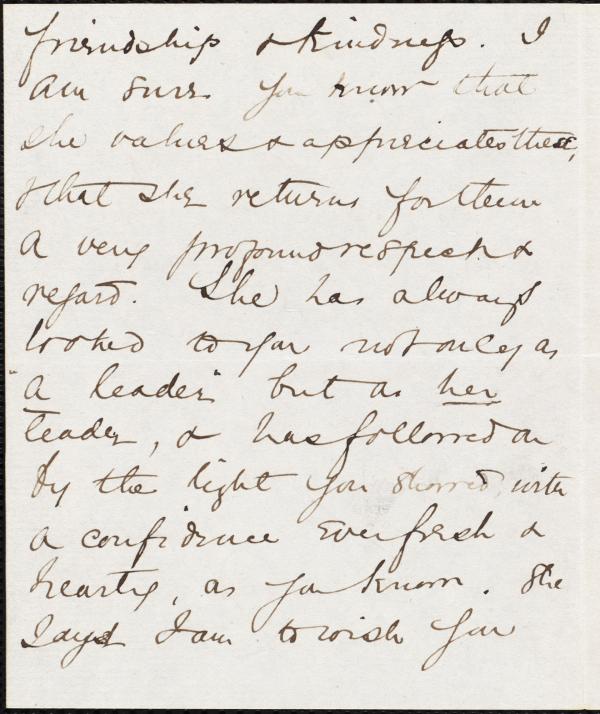 friendship & kindness. I
am sure you know that
she values & appreciates these,
& that she returns for them
a very profound respect &
regard. She has always
looked to you not only as
"a leader" but as her
leader, & has followed on
by the light you showed, with
a confidence ever fresh &
hearty, as you know. She
says I am to wish you